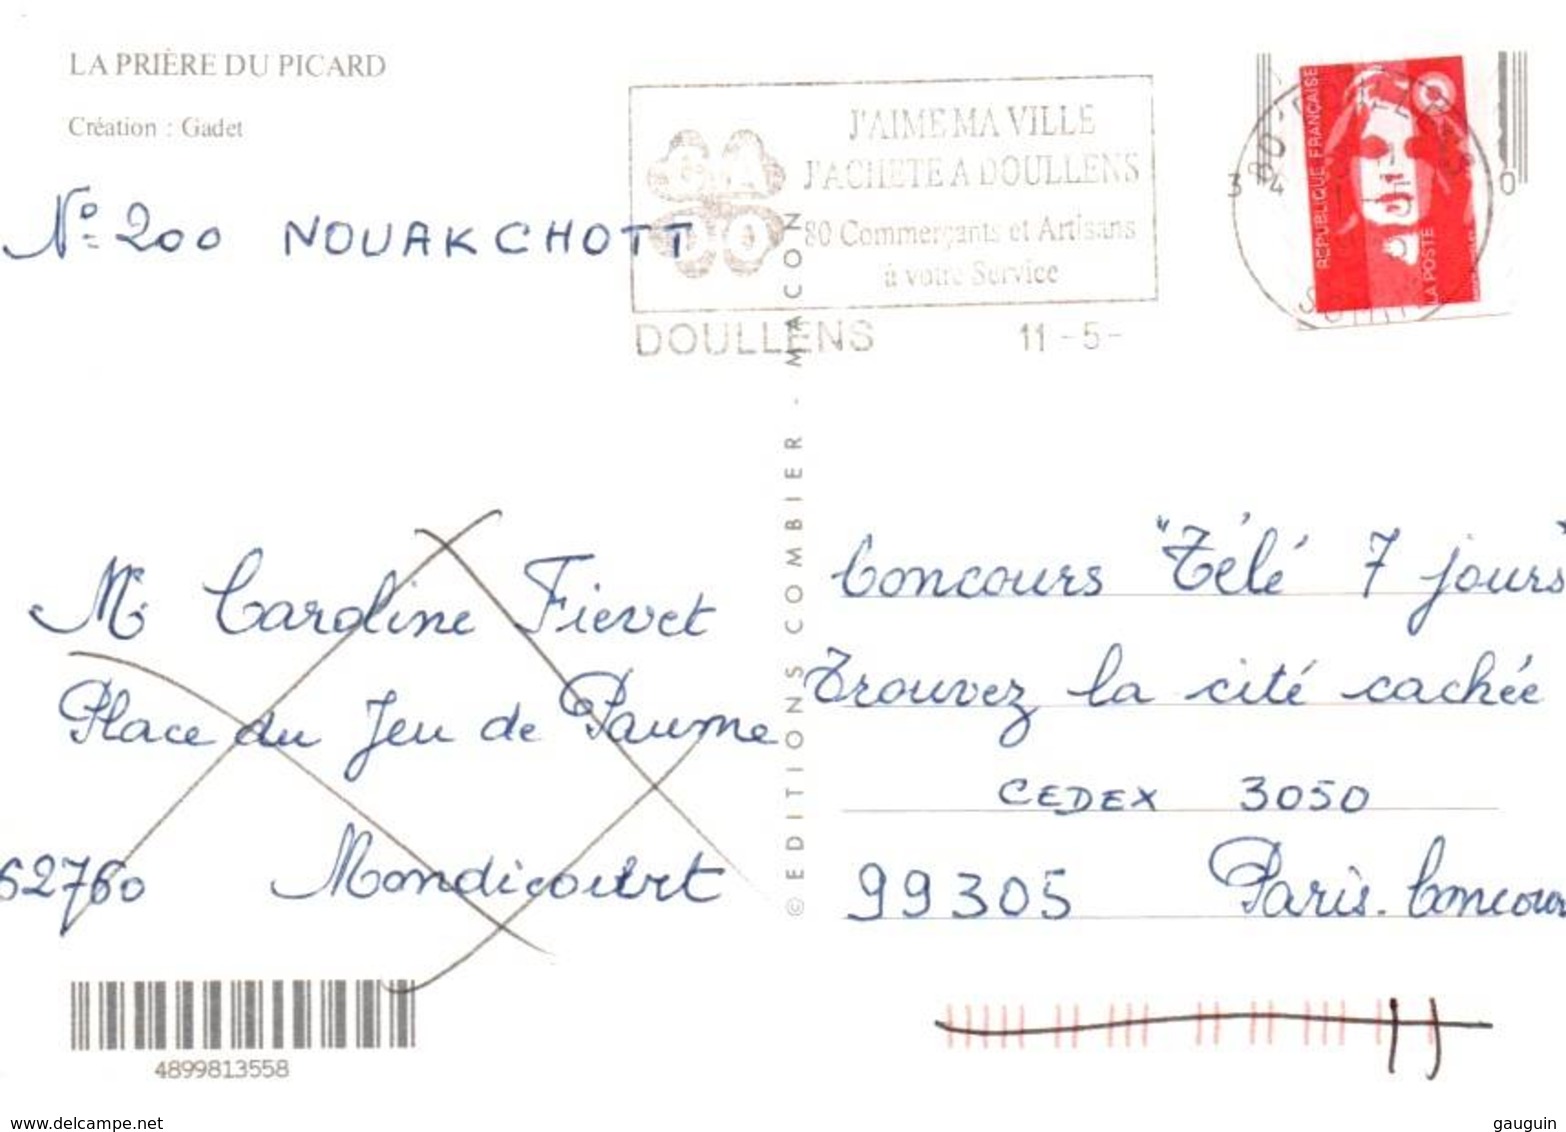 LA PRIÈRE DU PICARD
Création : Gadet
N° 200 NOUAKCHOTT
J'AIME MA VILLE
J'ACHETE A DOULLENS
80 Commerçants et Artisans
à votre Service
DOULLENS 11-5-
3 4 0
REPUBLIQUE FRANÇAISE
LA POSTE
© EDITIONS COMBIER - MACON
M. Caroline Fievet
Place du Jeu de Paume
62760 Mondicourt
Concours "Télé 7 jours"
Trouvez la cité cachée
CEDEX 3050
99305 Paris. Concours
4899813558
www.delcampe.net
gauguin